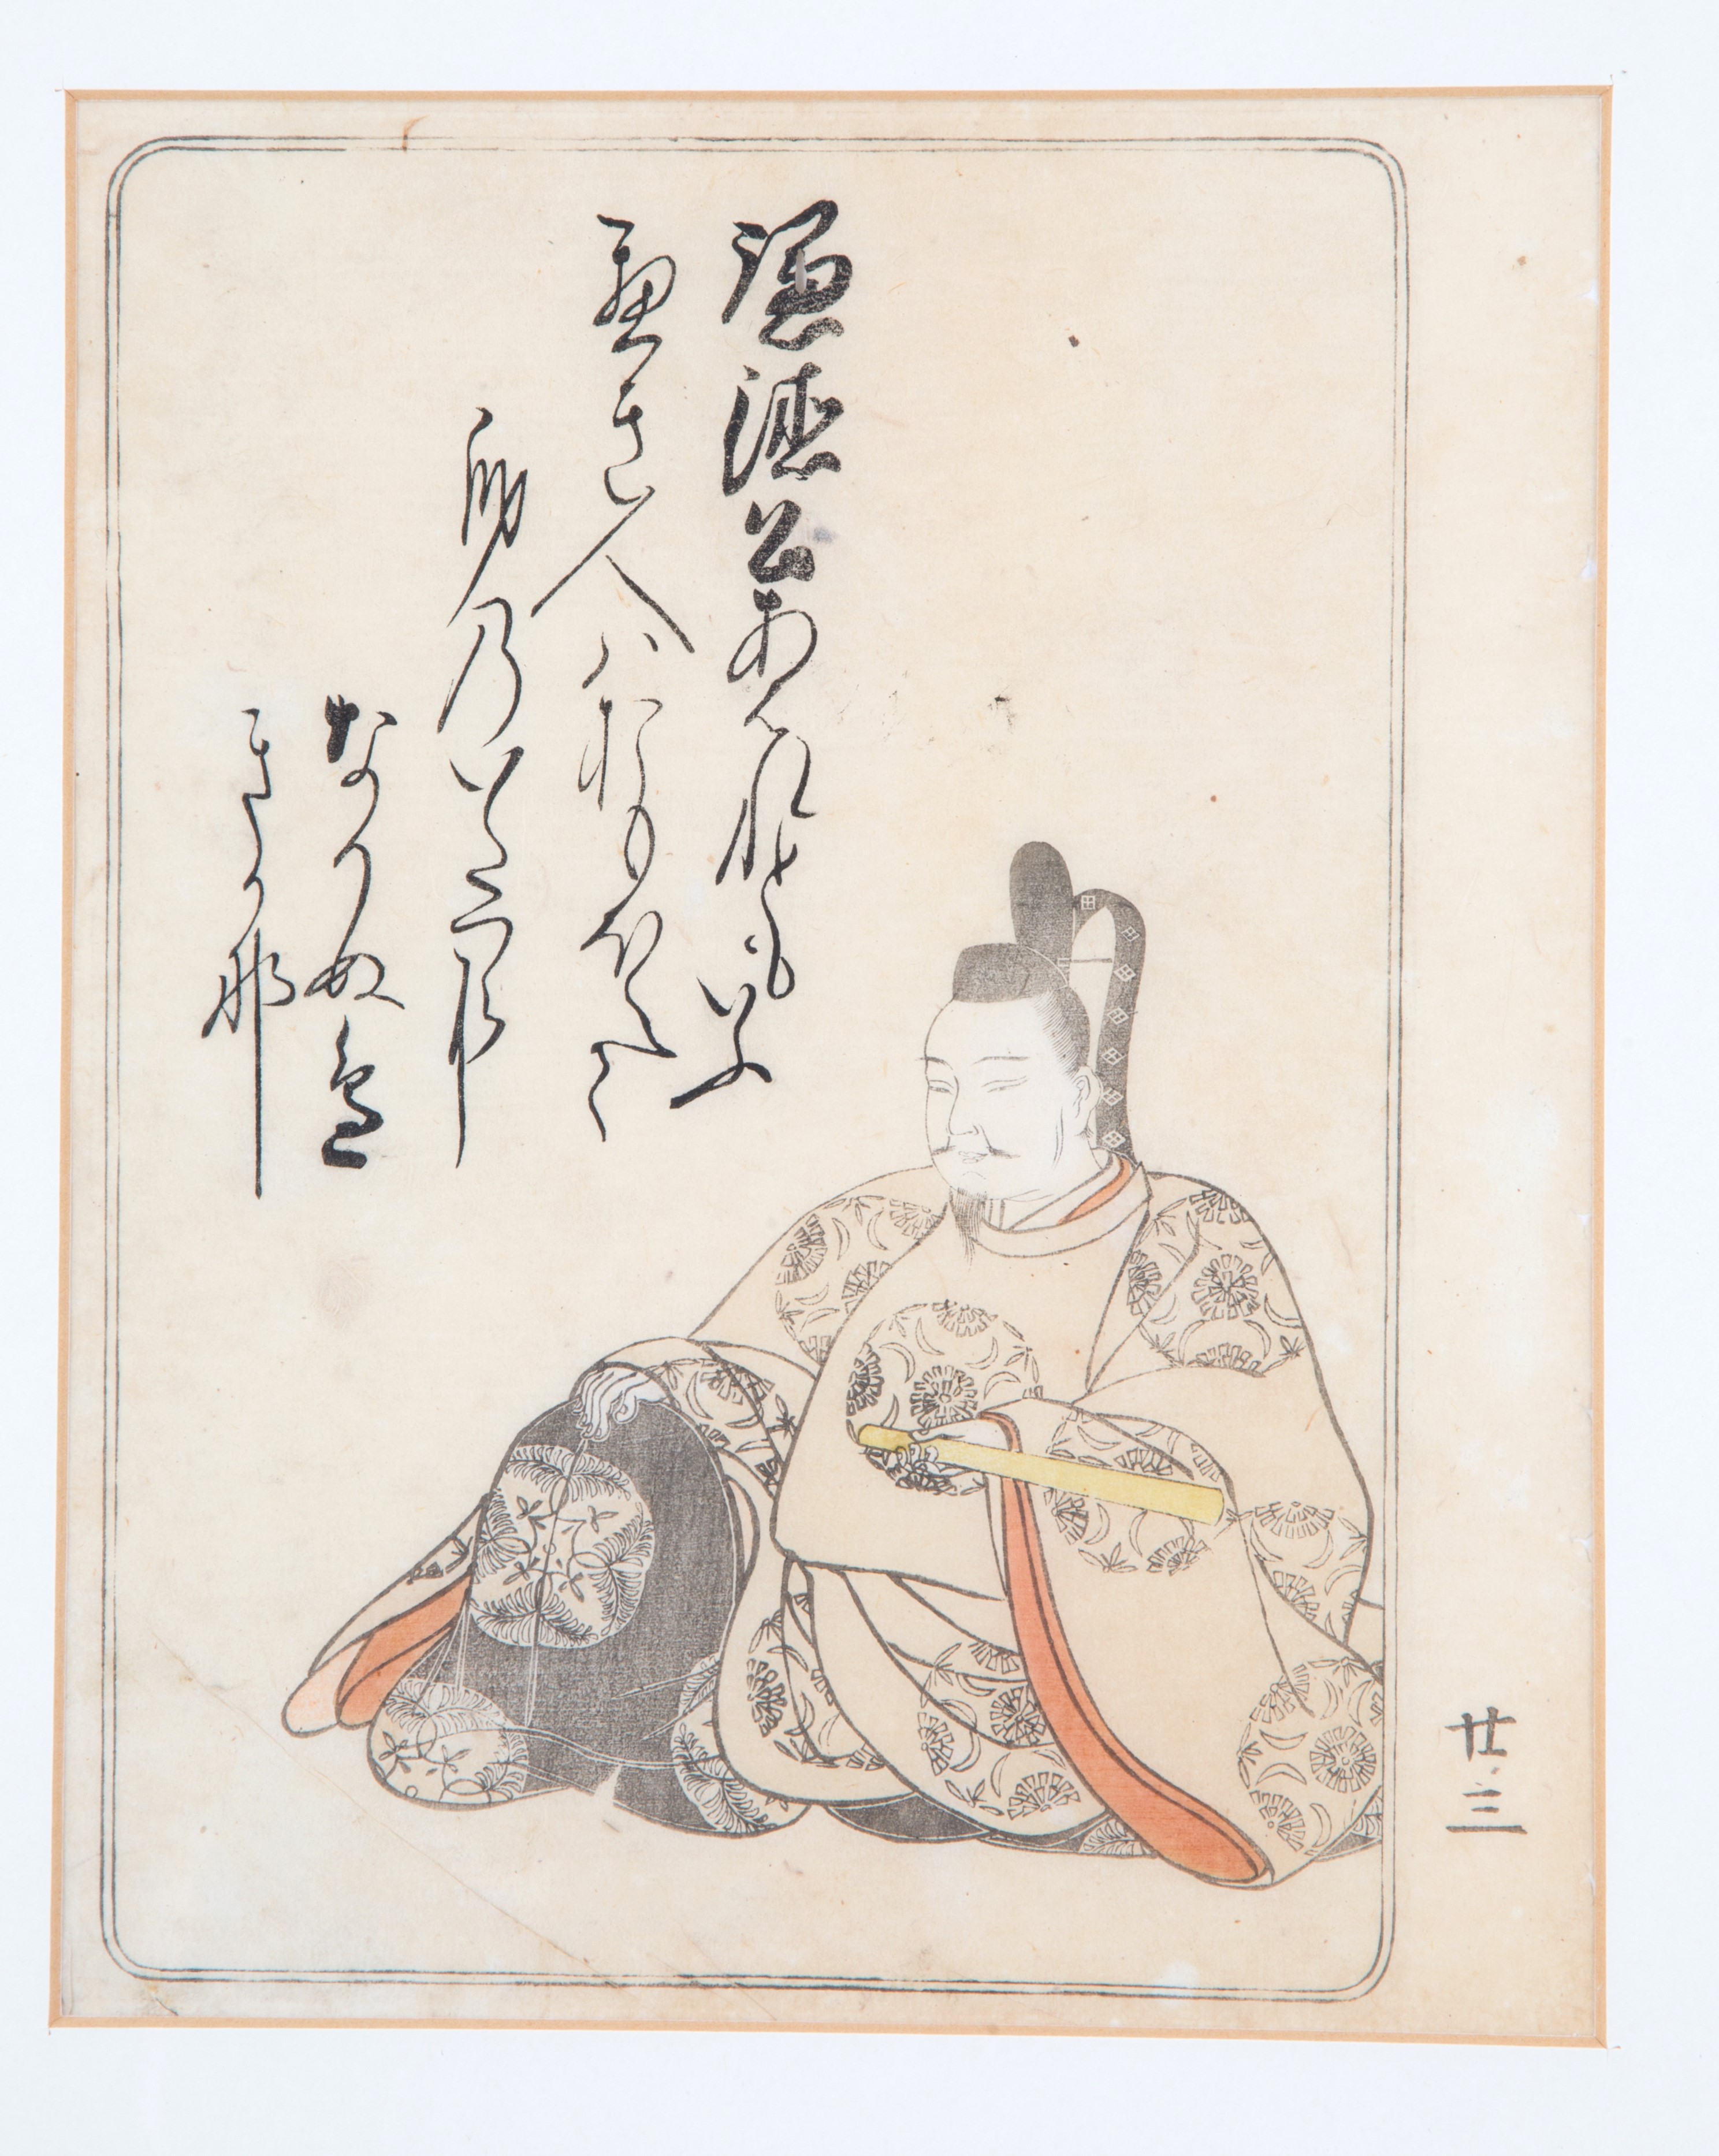 謙徳公あはれともいふ
へき人ハおもほえて
身乃いたつら
になりぬへ
きか那
廿三